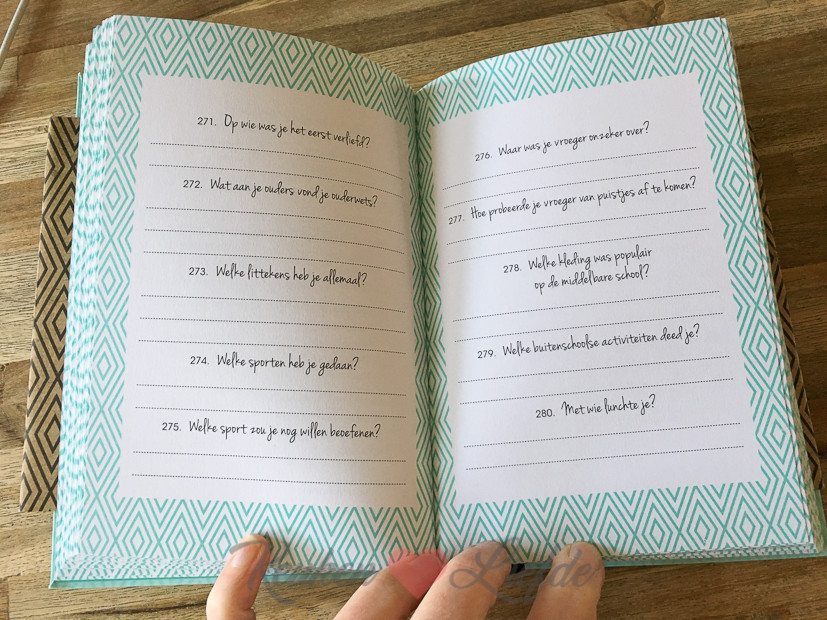 271. Op wie was je het eerst verliefd?
272. Wat aan je ouders vond je ouderwets?
273. Welke littekens heb je allemaal?
274. Welke sporten heb je gedaan?
275. Welke sport zou je nog willen beoefenen?
276. Waar was je vroeger onzeker over?
277. Hoe probeerde je vroeger van puistjes af te komen?
278. Welke kleding was populair
op de middelbare school?
279. Welke buitenschoolse activiteiten deed je?
280. Met wie lunchte je?
Liefde